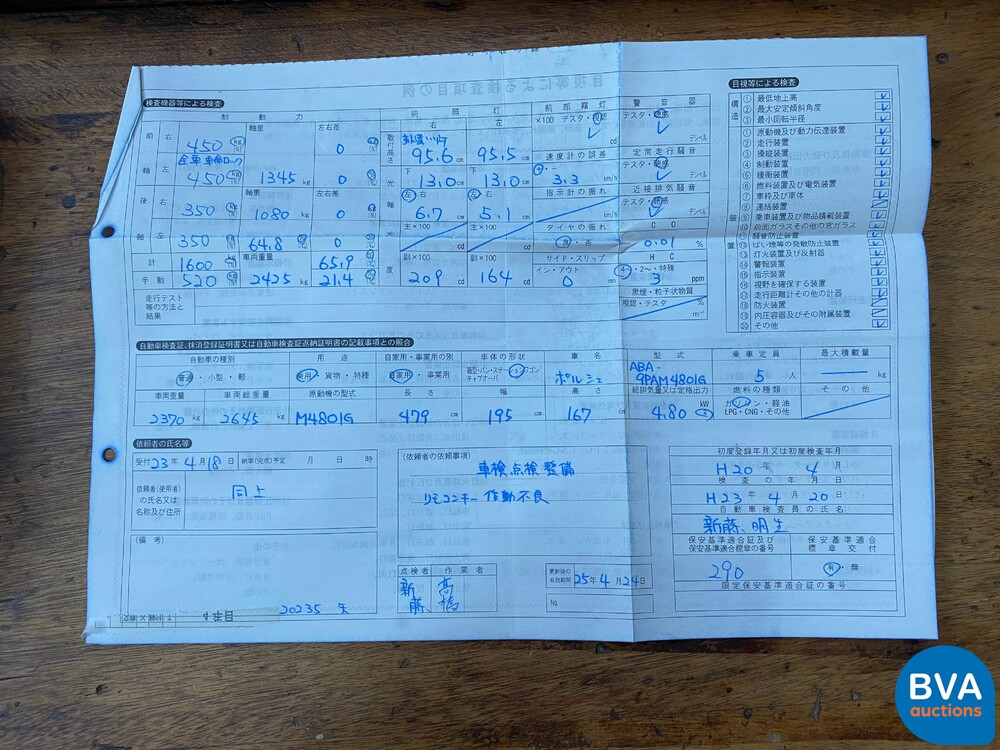 検査機器等による検査
制動力
前照灯
前部霧灯
警音器
目視等による検査
軸重
左右差
右
左
×100 テスタ・視認
テスタ・聴感
デシベル
前 右 450 kg 0
取付高さ 95.6 cm 95.5 cm
速度計の誤差
定常走行騒音
軸 左 450 1345 kg 0
下 13.0 cm 下 13.0 cm
3.3 km/h
テスタ・聴感
デシベル
指示計の振れ
近接排気騒音
後 右 350 軸重 1080 kg 左右差 0
左・右 6.7 cm 左・右 5.1 cm
km/h
テスタ・聴感
デシベル
主×100 cd 主×100 cd
タイヤの振れ
CO
軸 左 350 64.8 0
良・否
0.01 %
副×100 副×100
サイド・スリップ
HC
計 1600 車両重量 65.9
イン・アウト
4・2〜・特殊
手動 520 2425 kg 21.4
度 209 cd 164 cd
0 mm
3 ppm
黒煙・粒子状物質
走行テスト等の方法と結果
視認・テスタ %
m⁻¹
構造
① 最低地上高
② 最大安定傾斜角度
③ 最小回転半径
装置
① 原動機及び動力伝達装置
② 走行装置
③ 操縦装置
④ 制動装置
⑤ 緩衝装置
⑥ 燃料装置及び電気装置
⑦ 車枠及び車体
⑧ 連結装置
⑨ 乗車装置及び物品積載装置
⑩ 前面ガラスその他の窓ガラス
⑪ 騒音防止装置
⑫ ばい煙等の発散防止装置
⑬ 灯火装置及び反射器
⑭ 警報装置
⑮ 指示装置
⑯ 視野を確保する装置
⑰ 走行距離計その他の計器
⑱ 防火装置
⑲ 内圧容器及びその附属装置
⑳ その他
自動車検査証、抹消登録証明書又は自動車検査証返納証明書の記載事項との照合
自動車の種別
用途
自家用・事業用の別
車体の形状
車名
型式
乗車定員
最大積載量
普通・小型・軽
乗用・貨物・特種
自家用・事業用
ポルシェ
ABA-
9PAM4801G
5 人
kg
車両重量
車両総重量
原動機の型式
長さ
幅
高さ
総排気量又は定格出力
燃料の種類
その他
2370 kg
2645 kg
M4801G
479 cm
195 cm
167 cm
4.80 kW
ガソリン・軽油
LPG・CNG・その他
依頼者の氏名等
受付 23年 4月 18日 納車(完成)予定 月 日 時
依頼者(使用者)の氏名又は名称及び住所
同上
(備考)
20235
4年目
(依頼者の依頼事項)
車検点検整備
リモコンキー 作動不良
点検者
作業者
新藤
高橋
更新後の有効期間 25年4月24日
No.
初度登録年月又は初度検査年月
H20年 4月
検査の年月日
H23年 4月 20日
自動車検査員の氏名
新藤 明生
保安基準適合証及び保安基準適合標章の番号
保安基準適合標章交付
290
有・無
限定保安基準適合証の番号
BVA
auctions